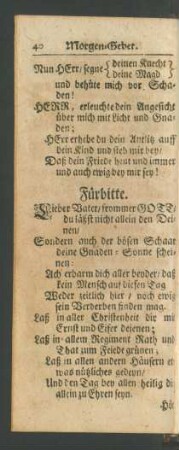 40 Morgen-Gebet.
Nun HErr/ segne { deinen Knecht
deine Magd
und behüte mich vor Scha-
den!
HERR, erleuchte dein Angesicht
über mich mit Licht und Gna-
den;
HErr erhebe du dein Antlitz auff
dein Kind und steh mir bey/
Daß dein Friede heut und immer
und auch ewig bey mir sey!
Fürbitte.
Lieber Vater/ frommer GOTT/
du läßst nicht allein den Dei-
nen/
Sondern auch der bösen Schaar
deine Gnaden-Sonne schei-
nen:
Ach erbarm dich aller beyder/ daß
kein Mensch auf diesen Tag
Weder zeitlich hier/ noch ewig
sein Verderben finden mag.
Laß in aller Christenheit die mit
Ernst und Eifer dienen;
Laß in allem Regiment Rath und
That zum Friede grünen;
Laß in allen andern Häusern
was nützliches gedeyn/
Und den Tag bey allen heilig di
allein zu Ehren seyn.